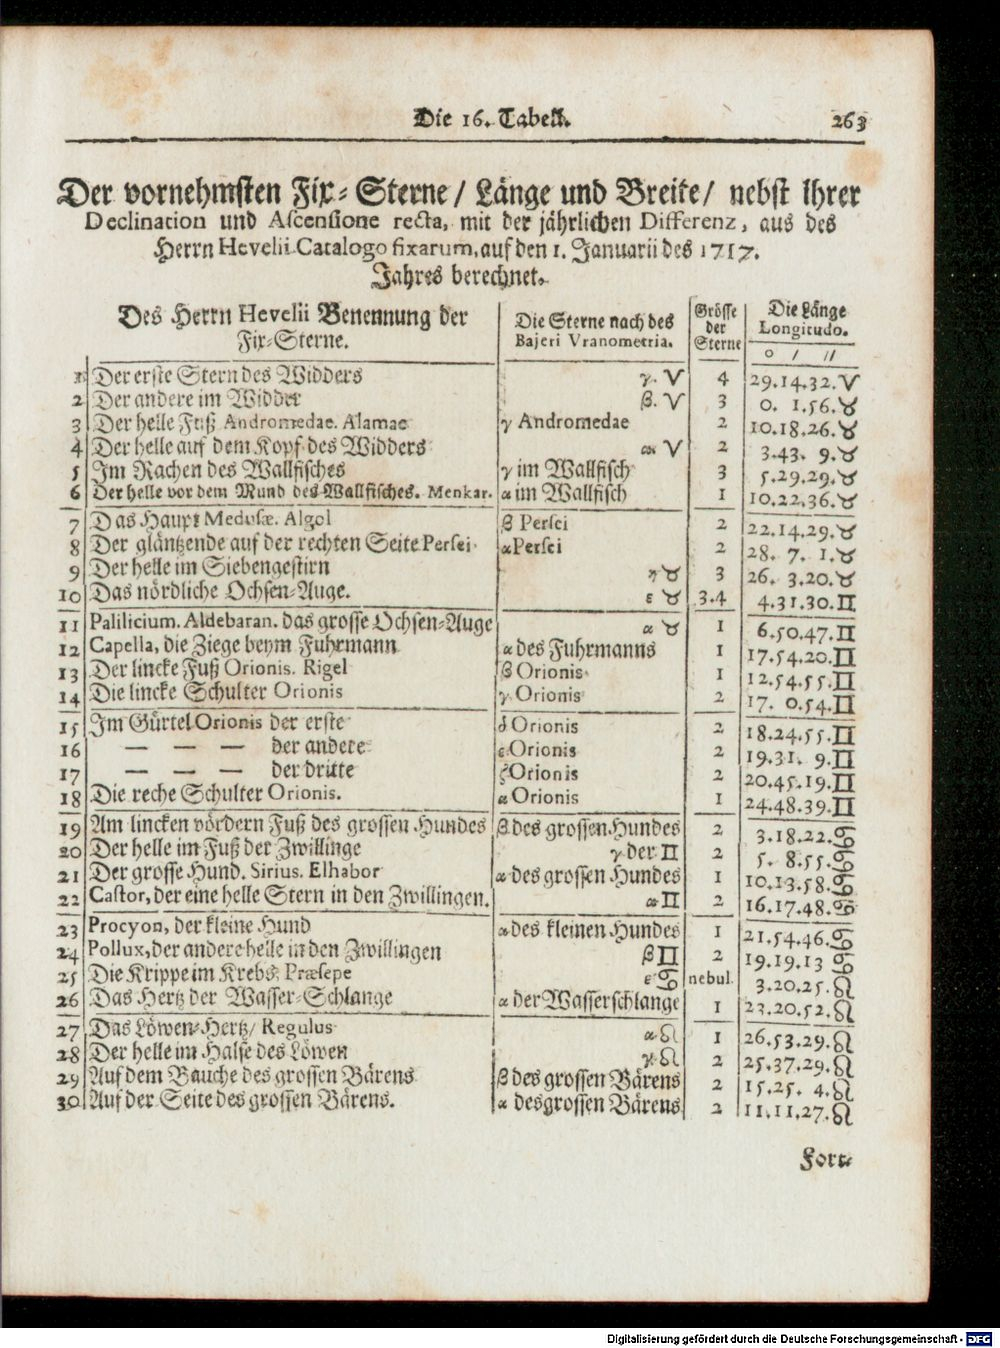 Die 16. Tabell. 263
Der vornehmsten Fix-Sterne / Länge und Breite / nebst Ihrer
Declination und Ascensione recta, mit der jährlichen Differenz, aus des
Herrn Hevelii Catalogo fixarum, auf den 1. Januarii des 1717.
Jahres berechnet.
Des Herrn Hevelii Benennung der Fix-Sterne. | Die Sterne nach des Bajeri Vranometria. | Grösse der Sterne | Die Länge Longitudo.
o / //
1 Der erste Stern des Widders γ. ♈ 4 29.14.32. ♈
2 Der andere im Widder β. ♈ 3 0. 1.56. ♉
3 Der helle Fuß Andromedae. Alamac γ Andromedae 2 10.18.26. ♉
4 Der helle auf dem Kopf des Widders α ♈ 2 3.43. 9. ♉
5 Im Rachen des Wallfisches γ im Wallfisch 3 5.29.29. ♉
6 Der helle vor dem Mund des Wallfisches. Menkar. α im Wallfisch 1 10.22.36. ♉
7 Das Haupt Medusæ. Algol β Persei 2 22.14.29. ♉
8 Der gläntzende auf der rechten Seite Persei α Persei 2 28. 7. 1. ♉
9 Der helle im Siebengestirn η ♉ 3 26. 3.20. ♉
10 Das nördliche Ochsen-Auge. ε ♉ 3.4 4.31.30. ♊
11 Palilicium. Aldebaran. das grosse Ochsen-Auge α ♉ 1 6.50.47. ♊
12 Capella, die Ziege beym Fuhrmann α des Fuhrmanns 1 17.54.20. ♊
13 Der lincke Fuß Orionis. Rigel β Orionis 1 12.54.55. ♊
14 Die lincke Schulter Orionis γ Orionis 2 17. 0.54. ♊
15 Im Gürtel Orionis der erste δ Orionis 2 18.24.55. ♊
16 — — — der andere ε Orionis 2 19.31. 9. ♊
17 — — — der dritte ζ Orionis 2 20.45.19. ♊
18 Die reche Schulter Orionis. α Orionis 1 24.48.39. ♊
19 Am lincken vördern Fuß des grossen Hundes β des grossen Hundes 2 3.18.22. ♋
20 Der helle im Fuß der Zwillinge γ der ♊ 2 5. 8.55. ♋
21 Der grosse Hund. Sirius. Elhabor α des grossen Hundes 1 10.13.58. ♋
22 Castor, der eine helle Stern in den Zwillingen. α ♊ 2 16.17.48. ♋
23 Procyon, der kleine Hund α des kleinen Hundes 1 21.54.46. ♋
24 Pollux, der andere helle in den Zwillingen β ♊ 2 19.19.13 ♋
25 Die Krippe im Krebs. Præsepe ε ♋ nebul. 3.20.25. ♌
26 Das Hertz der Wasser-Schlange α der Wasserschlange 1 23.20.52. ♌
27 Das Löwen-Hertz / Regulus α ♌ 1 26.53.29. ♌
28 Der helle im Halse des Löwen γ ♌ 2 25.37.29. ♌
29 Auf dem Bauche des grossen Bärens β des grossen Bärens 2 15.25. 4. ♌
30 Auf der Seite des grossen Bärens. α des grossen Bärens 2 11.11.27. ♌
Fort-
Digitalisierung gefördert durch die Deutsche Forschungsgemeinschaft - DFG